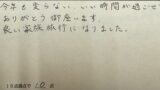 今年も変らない、いい時間が過ごせ
ありがとう御座います。
良い家族旅行になりました。
10点満点で 10 点